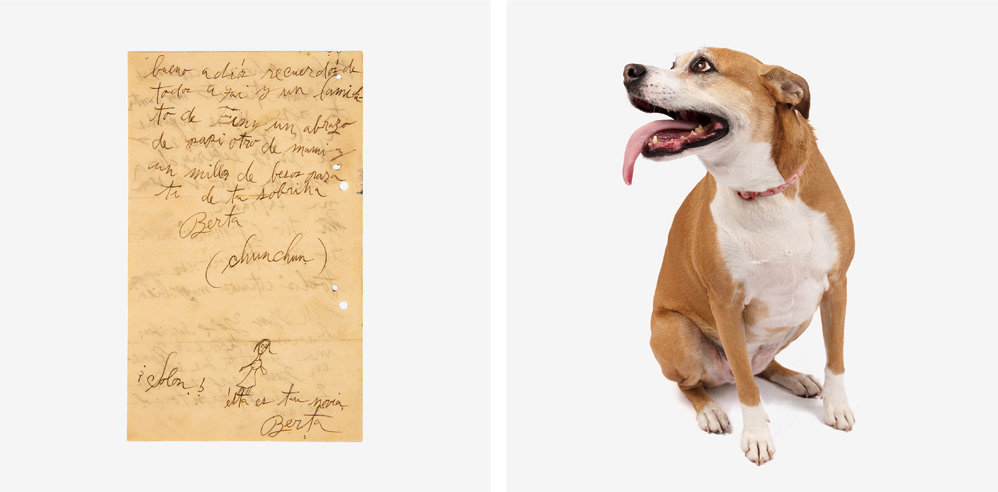 bueno adiós recuerdos de
todos aqui y un lamidi
to de Finy un abrazo
de papi otro de mami y
un millón de besos para
ti de tu sobrina
Berta
(chunchun)
¡ Solon !
ésta es tu novia
Berta